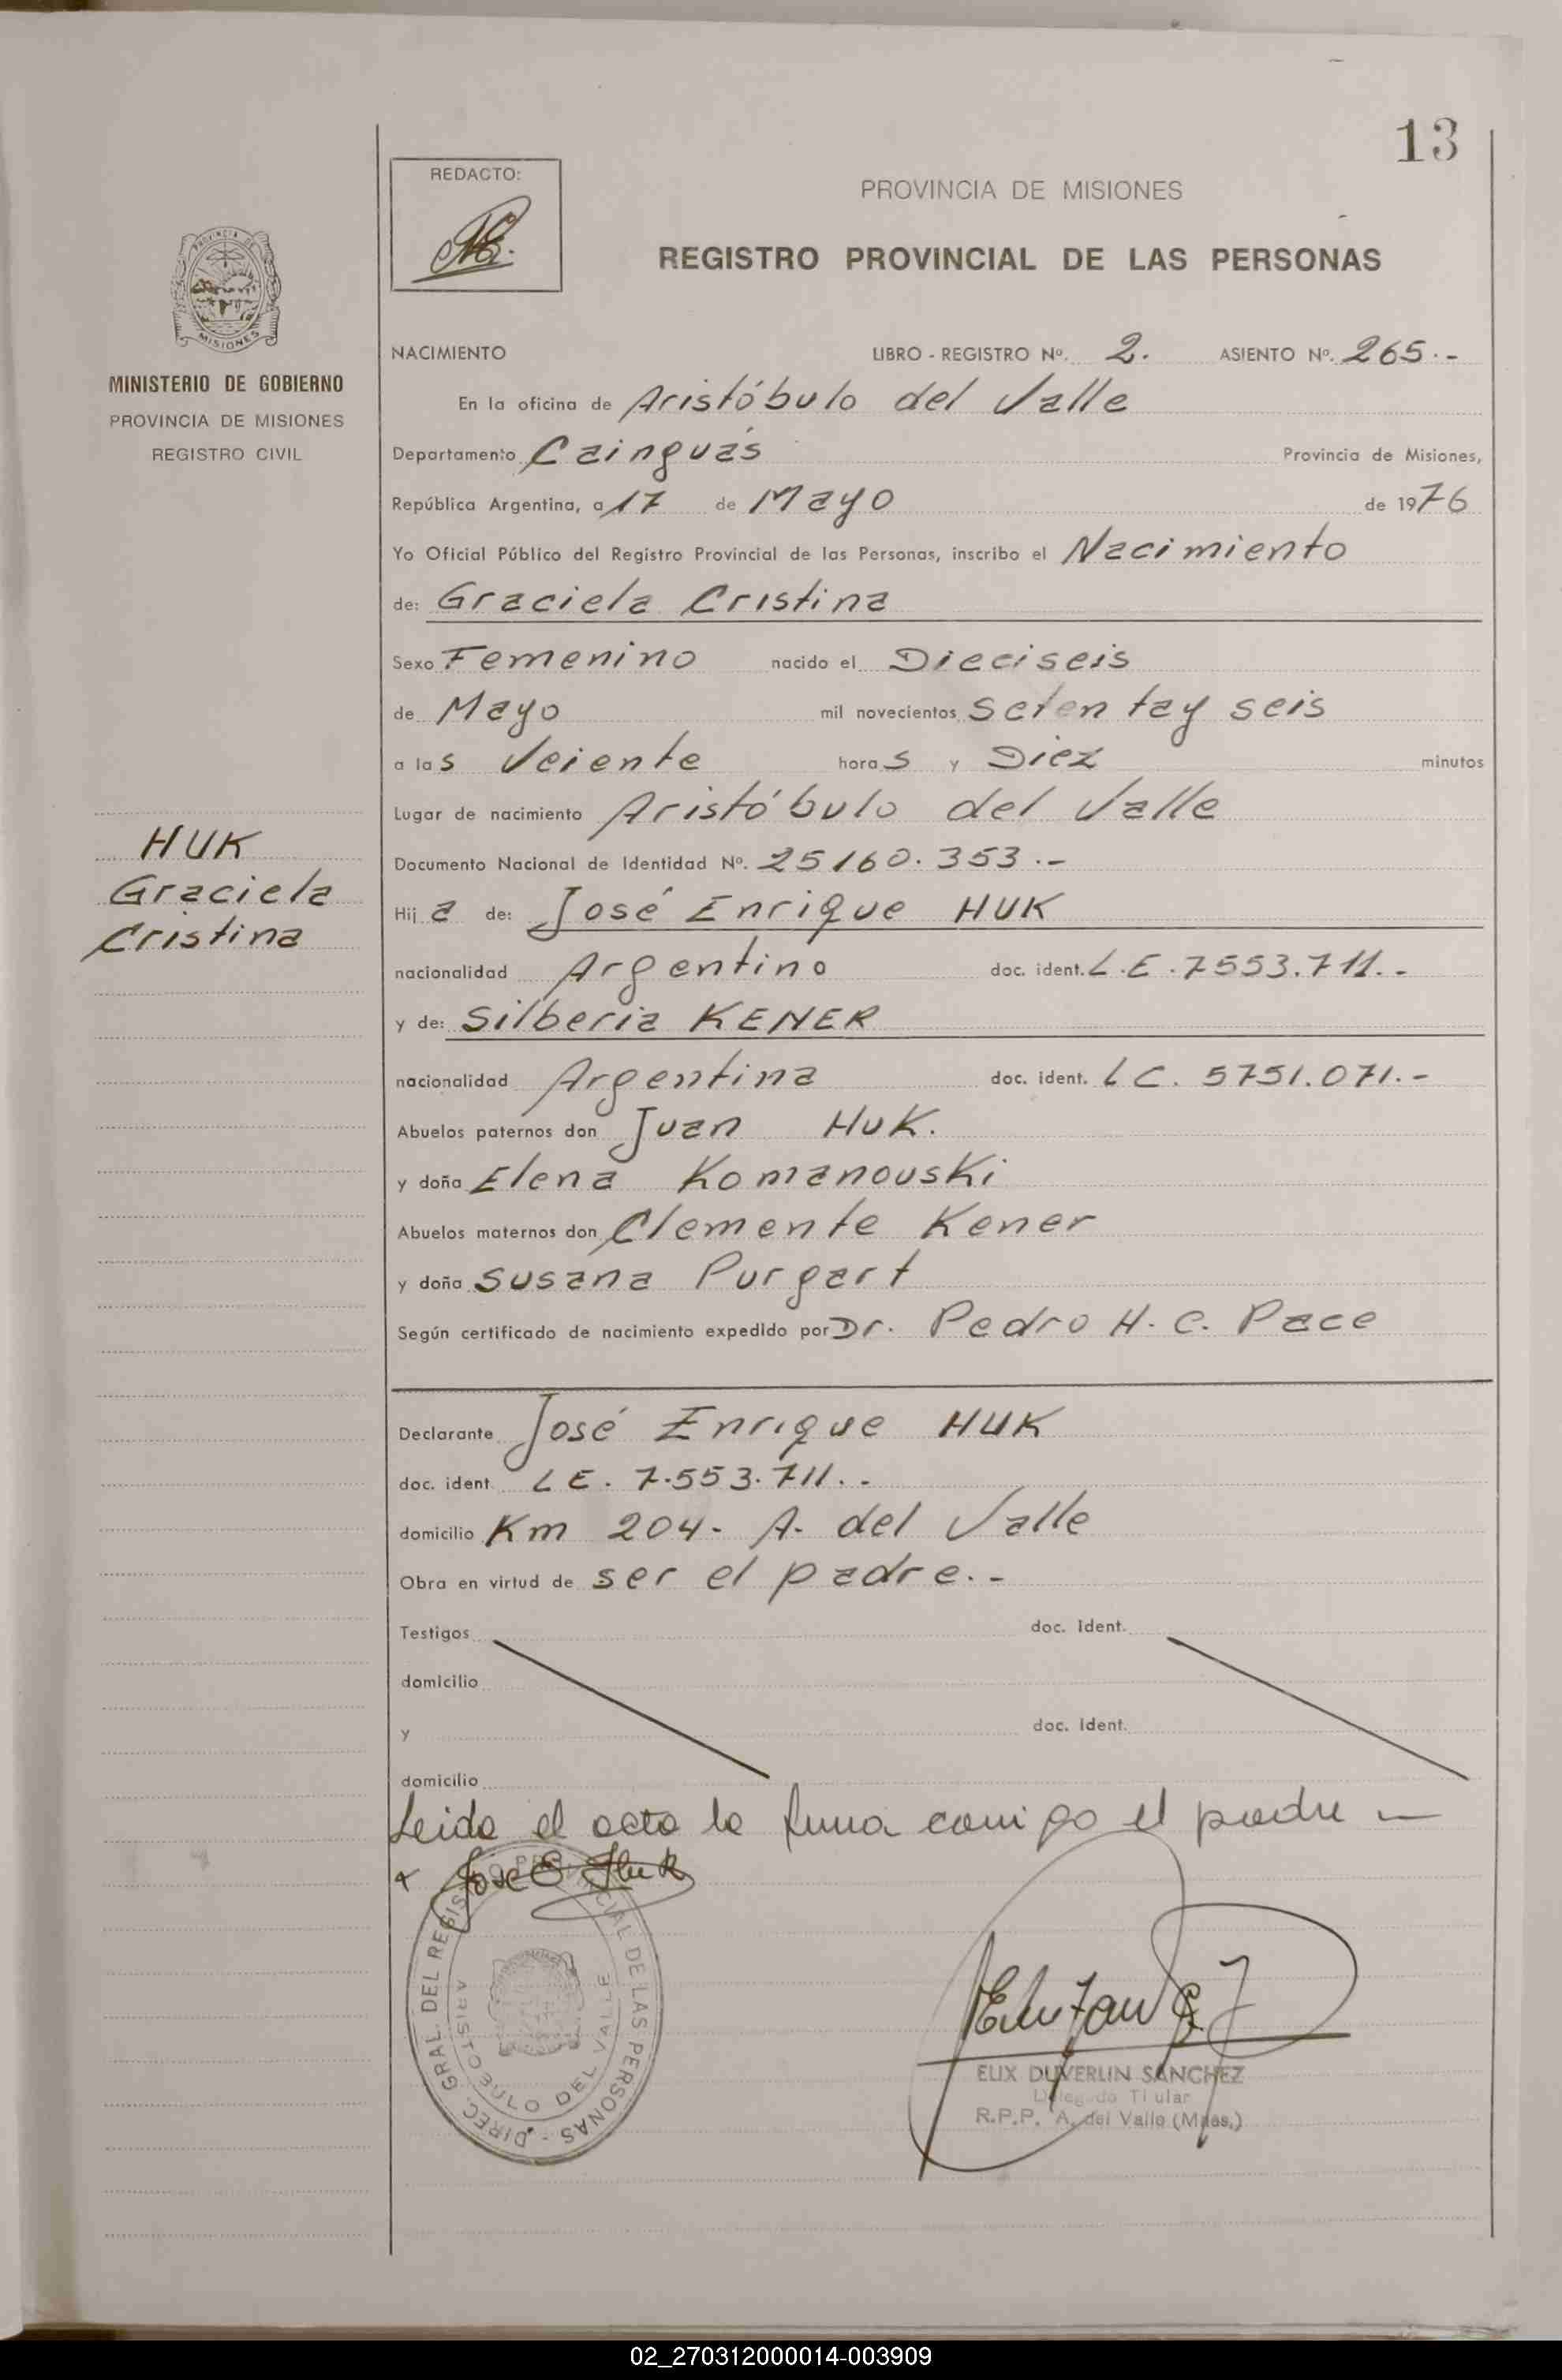 13
REDACTO:
PROVINCIA DE MISIONES
REGISTRO PROVINCIAL DE LAS PERSONAS
PROVINCIA DE
MISIONES
MINISTERIO DE GOBIERNO
PROVINCIA DE MISIONES
REGISTRO CIVIL
NACIMIENTO LIBRO - REGISTRO Nº. 2. ASIENTO Nº. 265.-
En la oficina de Aristóbulo del Valle
Departamento Cainguás Provincia de Misiones,
República Argentina, a 17 de Mayo de 1976
Yo Oficial Público del Registro Provincial de las Personas, inscribo el Nacimiento
de: Graciela Cristina
Sexo Femenino nacido el Dieciseis
de Mayo mil novecientos setentay seis
a las Veiente horas y Diez minutos
Lugar de nacimiento Aristóbulo del Valle
Documento Nacional de Identidad Nº. 25160.353.-
HUK
Graciela
Cristina
Hija de: José Enrique HUK
nacionalidad Argentino doc. ident. L.E.7553.711.-
y de: Silberia KENER
nacionalidad Argentina doc. ident. LC. 5751.071.-
Abuelos paternos don Juan HUK.
y doña Elena Komanouski
Abuelos maternos don Clemente Kener
y doña Susana Purgart
Según certificado de nacimiento expedido por Dr. Pedro H. C. Pace
Declarante José Enrique HUK
doc. ident. LE. 7.553.711.-
domicilio Km 204- A. del Valle
Obra en virtud de ser el padre.-
Testigos doc. Ident.
domicilio
y doc. Ident.
domicilio
Leida el acta la firma conmigo el padre -
x Jose E Huk
DIREC. GRAL. DEL REGISTRO PROVINCIAL DE LAS PERSONAS -
ARISTOBULO DEL VALLE
ELIX DUVERLIN SANCHEZ
Delegado Titular
R.P.P. A. del Valle (Mnes.)
02_270312000014-003909